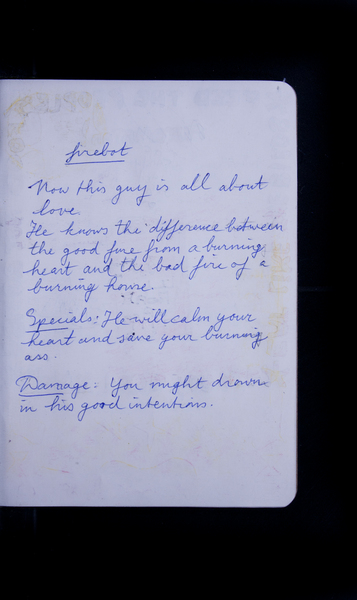 firebot
Now this guy is all about
love.
He knows the difference between
the good fire from a burning
heart and the bad fire of a
burning house.
Specials: He will calm your
heart and save your burning
ass.
Damage: You might drown
in his good intentions.